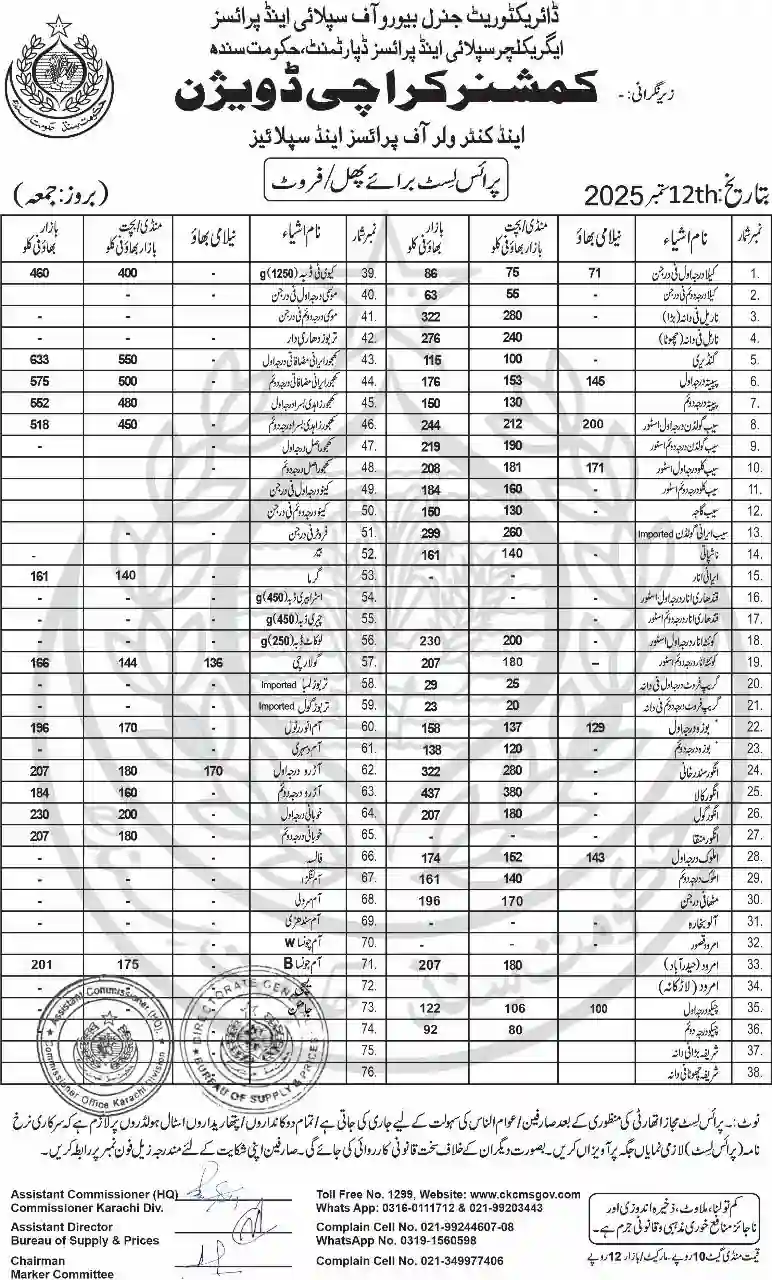 ڈائریکٹوریٹ جنرل بیورو آف سپلائی اینڈ پرائسز
ایگریکلچر سپلائی اینڈ پرائسز ڈپارٹمنٹ، حکومت سندھ
زیر نگرانی:- کمشنر کراچی ڈویژن
اینڈ کنٹرولر آف پرائسز اینڈ سپلائیز
بتاریخ: 12th ستمبر 2025 پرائس لسٹ برائے پھل/فروٹ (بروز: جمعہ)
نمبر شمار نام اشیاء نیلامی بھاؤ منڈی/بچت بازار بھاؤ فی کلو بازار بھاؤ فی کلو نمبر شمار نام اشیاء نیلامی بھاؤ منڈی/بچت بازار بھاؤ فی کلو بازار بھاؤ فی کلو
1. کیلا درجہ اول فی درجن 71 75 86 39. کیوی فی ڈبہ (1250)g - 400 460
2. کیلا درجہ دوئم فی درجن - 55 63 40. موسمی درجہ اول فی درجن - - -
3. ناریل فی دانہ (بڑا) - 280 322 41. موسمی درجہ دوئم فی درجن - - -
4. ناریل فی دانہ (چھوٹا) - 240 276 42. تربوز دھاری دار - - -
5. گنڈیری - 100 115 43. کھجور ایرانی مضافاتی درجہ اول - 550 633
6. پپیتہ درجہ اول 145 153 176 44. کھجور ایرانی مضافاتی درجہ دوئم - 500 575
7. پپیتہ درجہ دوئم - 130 150 45. کھجور زاہدی بسرا درجہ اول - 480 552
8. سیب گولڈن درجہ اول اسٹور 200 212 244 46. کھجور زاہدی بسرا درجہ دوئم - 450 518
9. سیب گولڈن درجہ دوئم اسٹور - 190 219 47. کھجور اصل درجہ اول - - -
10. سیب کلو درجہ اول اسٹور 171 181 208 48. کھجور اصل درجہ دوئم - - -
11. سیب کلو درجہ دوئم اسٹور - 160 184 49. کینو درجہ اول فی درجن
12. سیب گاجہ - 130 150 50. کینو درجہ دوئم فی درجن
13. سیب ایرانی گولڈن Imported - 260 299 51. فروٹر فی درجن - - -
14. ناشپاتی - 140 161 52. بیر -
15. ایرانی انار - - - 53. گرما - 140 161
16. قندھاری انار درجہ اول اسٹور - 54. اسٹرابیری ڈبہ (450)g - - -
17. قندھاری انار درجہ دوئم اسٹور - 55. چیری ڈبہ (450)g - - -
18. کوئٹہ انار درجہ اول اسٹور - 200 230 56. لوکاٹ ڈبہ (250)g - - -
19. کوئٹہ انار درجہ دوئم اسٹور - 180 207 57. گولارچی 136 144 166
20. گریپ فروٹ درجہ اول فی دانہ - 25 29 58. تربوز لمبا Imported - - -
21. گریپ فروٹ درجہ دوئم فی دانہ - 20 23 59. تربوز گول Imported - - -
22. بوزہ درجہ اول 129 137 158 60. آم انور رٹول - 170 196
23. بوزہ درجہ دوئم - 120 138 61. آم دسہری - - -
24. انگور سندرخانی - 280 322 62. آڑو درجہ اول 170 180 207
25. انگور کالا - 380 437 63. آڑو درجہ دوئم - 160 184
26. انگور گول - 180 207 64. خوبانی درجہ اول - 200 230
27. انگور منقا - - - 65. خوبانی درجہ دوئم - 180 207
28. املوک درجہ اول 143 152 174 66. فالسہ - - -
29. املوک درجہ دوئم - 140 161 67. آم لنگڑا - - -
30. مٹھا فی درجن - 170 196 68. آم سرولی - - -
31. آلو بخارہ - - - 69. آم سندھڑی - - -
32. امرود قصور - - - 70. آم چونسا W - - -
33. امرود (حیدرآباد) - 180 207 71. آم چونسا B - 175 201
34. امرود (لاڑکانہ) - 72. لیچی
35. چیکو درجہ اول 100 106 122 73. جامن
36. چیکو درجہ دوئم - 80 92 74.
37. شریفہ بڑا فی دانہ 75.
38. شریفہ چھوٹا فی دانہ 76.
Assistant Commissioner (HQ)
Commissioner Office Karachi Division
DIRECTORATE GENERAL
BUREAU OF SUPPLY & PRICES
نوٹ:۔ پرائس لسٹ مجاز اتھارٹی کی منظوری کے بعد صارفین/عوام الناس کی سہولت کے لیے جاری کی جاتی ہے/تمام دوکانداروں/پتھاریداروں اسٹال ہولڈروں پر لازم ہے کہ سرکاری نرخ
نامہ (پرائس لسٹ) لازمی نمایاں جگہ پر آویزاں کریں۔ بصورت دیگر ان کے خلاف سخت قانونی کارروائی کی جائے گی۔ صارفین اپنی شکایت کے لئے مندرجہ زیل فون نمبر پر رابطہ کریں۔
Assistant Commissioner (HQ)
Commissioner Karachi Div.
Assistant Director
Bureau of Supply & Prices
Chairman
Marker Committee
Toll Free No. 1299, Website: www.ckcmsgov.com
Whats App: 0316-0111712 & 021-99203443
Complain Cell No. 021-99244607-08
WhatsApp No. 0319-1560598
Complain Cell No. 021-349977406
کم تولنا، ملاوٹ، ذخیرہ اندوزی اور
ناجائز منافع خوری مذہبی و قانونی جرم ہے۔
قیمت منڈی گیٹ 10 روپے۔ مارکیٹ/بازار 12 روپے